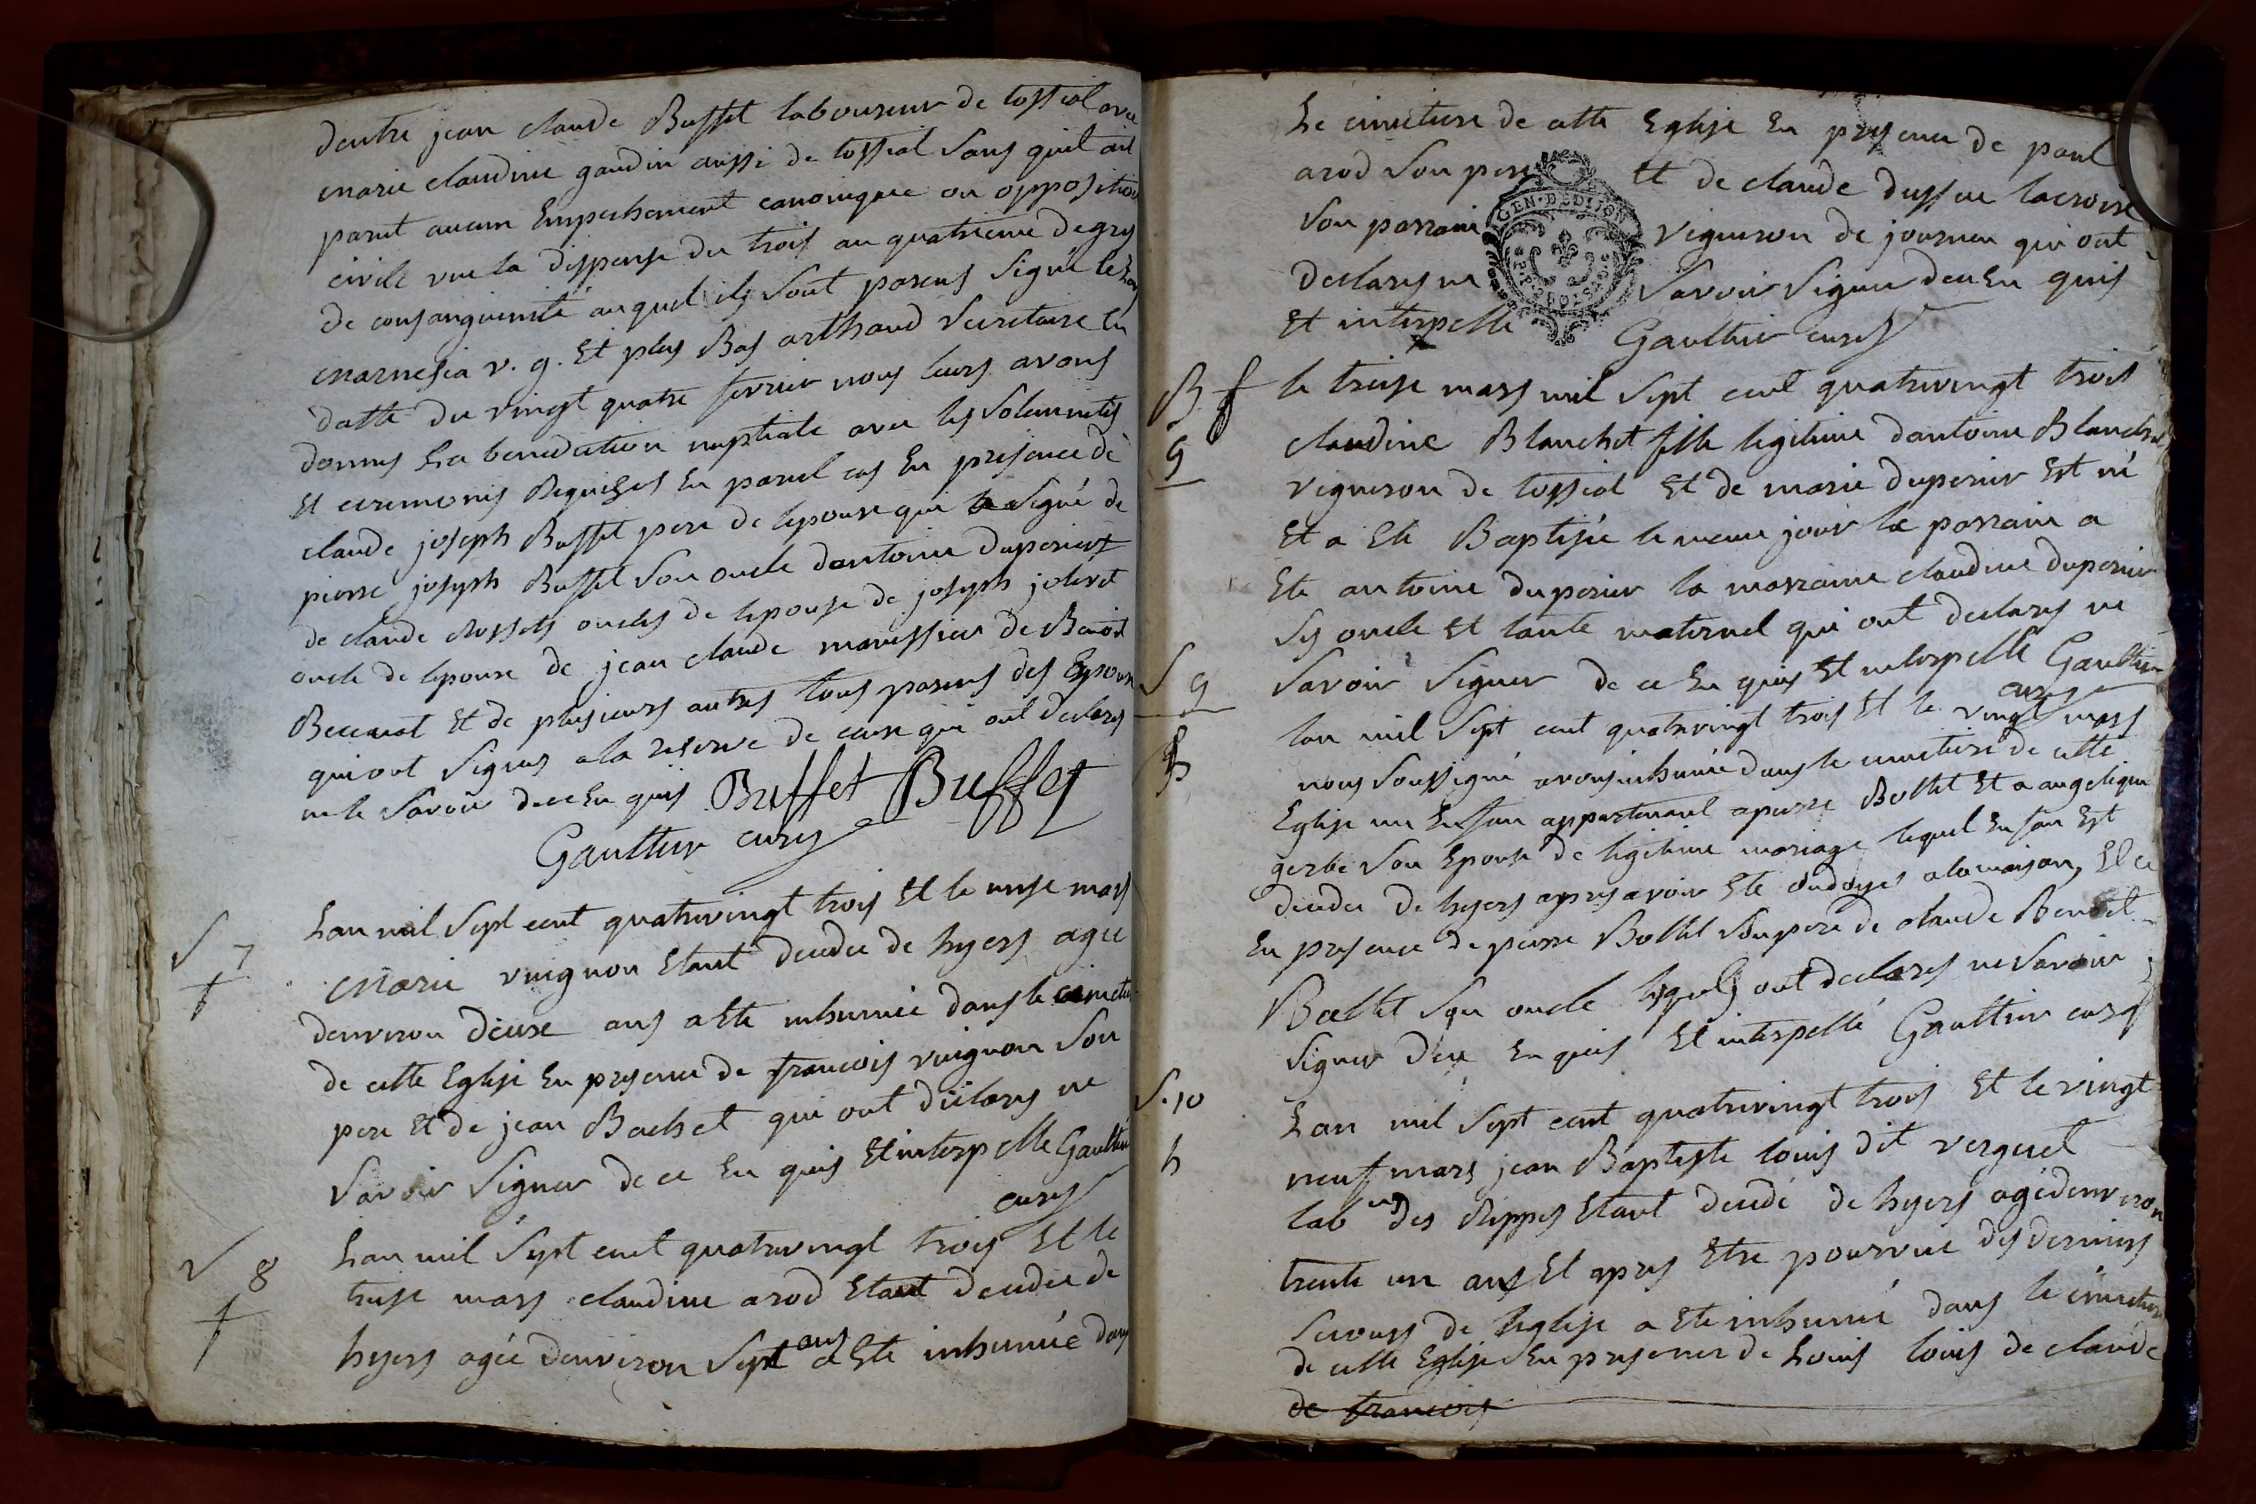 dentre jean claude Buffet laboureur de tossiat avec
marie claudine gaudin aussi de tossiat sans quil ait
parut aucun Empechement canonique ou opposition
civile vue la dispense du trois au quatrieme degres
de consanguinité auquel ils sont parens signé
marnesia v. g. Et plus Bas arthaud secretaire En
datte du vingt quatre fevrier nous leurs avons
donnés La benediction nuptiale avec les solemnites
Et ceremonies Requises En pareil cas En presence de
claude joseph Buffet pere de lepoux qui a signé de
pierre joseph Buffet son oncle dantoine duperier
de claude Rossets oncles de lepouse de joseph jolivet
oncle de lepoux de jean claude manissier de Benoit
Beccarat Et de plusieurs autres tous parens des Epoux
qui ont signes a la reserve de ceux qui ont declares
ne le savoir de ce En quis Buffet Buffet
Gaulthier curé
S 7
f
Lan mil sept cent quatrevingt trois Et le onze mars
marie vuignon Etant decedee de hyers agee
denviron deuse ans a Ete inhumée dans le cimetie
de cette Eglise En presence de francois vuignon son
pere Et de jean Bachet qui ont déclares ne
savoir signer de ce En quis Et interpelle Gaulthier
curé
S 8
f
Lan mil sept cent quatrevingt trois Et le
treise mars claudine arod Etant decedee de
hyers agée denviron sept ans a Ete inhumée dans
Le cimetiere de cette Eglise En presence de paul
arod son pere Et de claude dufour lacroix
GEN. DE DIJON
son parrain vigneron de journen qui ont
declares ne savoir signer de ce En quis
Et interpelle Gaulthier curé
B f
9
le treise mars mil sept cent quatrevingt trois
claudine Blanchet fille legitime dantoine Blanchet
vigneron de tossiat Et de marie duperier Est né
Et a Ete Baptisée le meme jour le parrain a
Ete antoine duperier la marraine claudine duperier
ses oncle Et tante maternel qui ont declares ne
savoir signer de ce En quis Et interpellé Gaulthier
curé
S 9
h
lan mil sept cent quatrevingt trois Et le vingt mars
nous soussigné avons inhumé dans le cimetiere de cette
Eglise un Enfan appartenant a pierre Bollet Et a angelique
gerbe son Epouse de legitime mariage lequel Enfan Est
decedee de hyers apres avoir Ete ondoyes a la maison, Et ce
En presence de pierre Bollet son pere de claude Benoit
Bollet son oncle lesquels ont declares ne savoir
signer de ce En quis Et interpellé Gaulthier curé
S. 10
h
Lan mil sept cent quatrevingt trois Et le vingt
neuf mars jean Baptiste louis dit verguet
lab ur des Rippes Etant decedé de hyers agé denviron
trente un ans Et apres Etre pourvue des derniers
secours de leglise a Ete inhumé dans le cimetiere
de cette Eglise En presence de Louis louis de claude
de francois